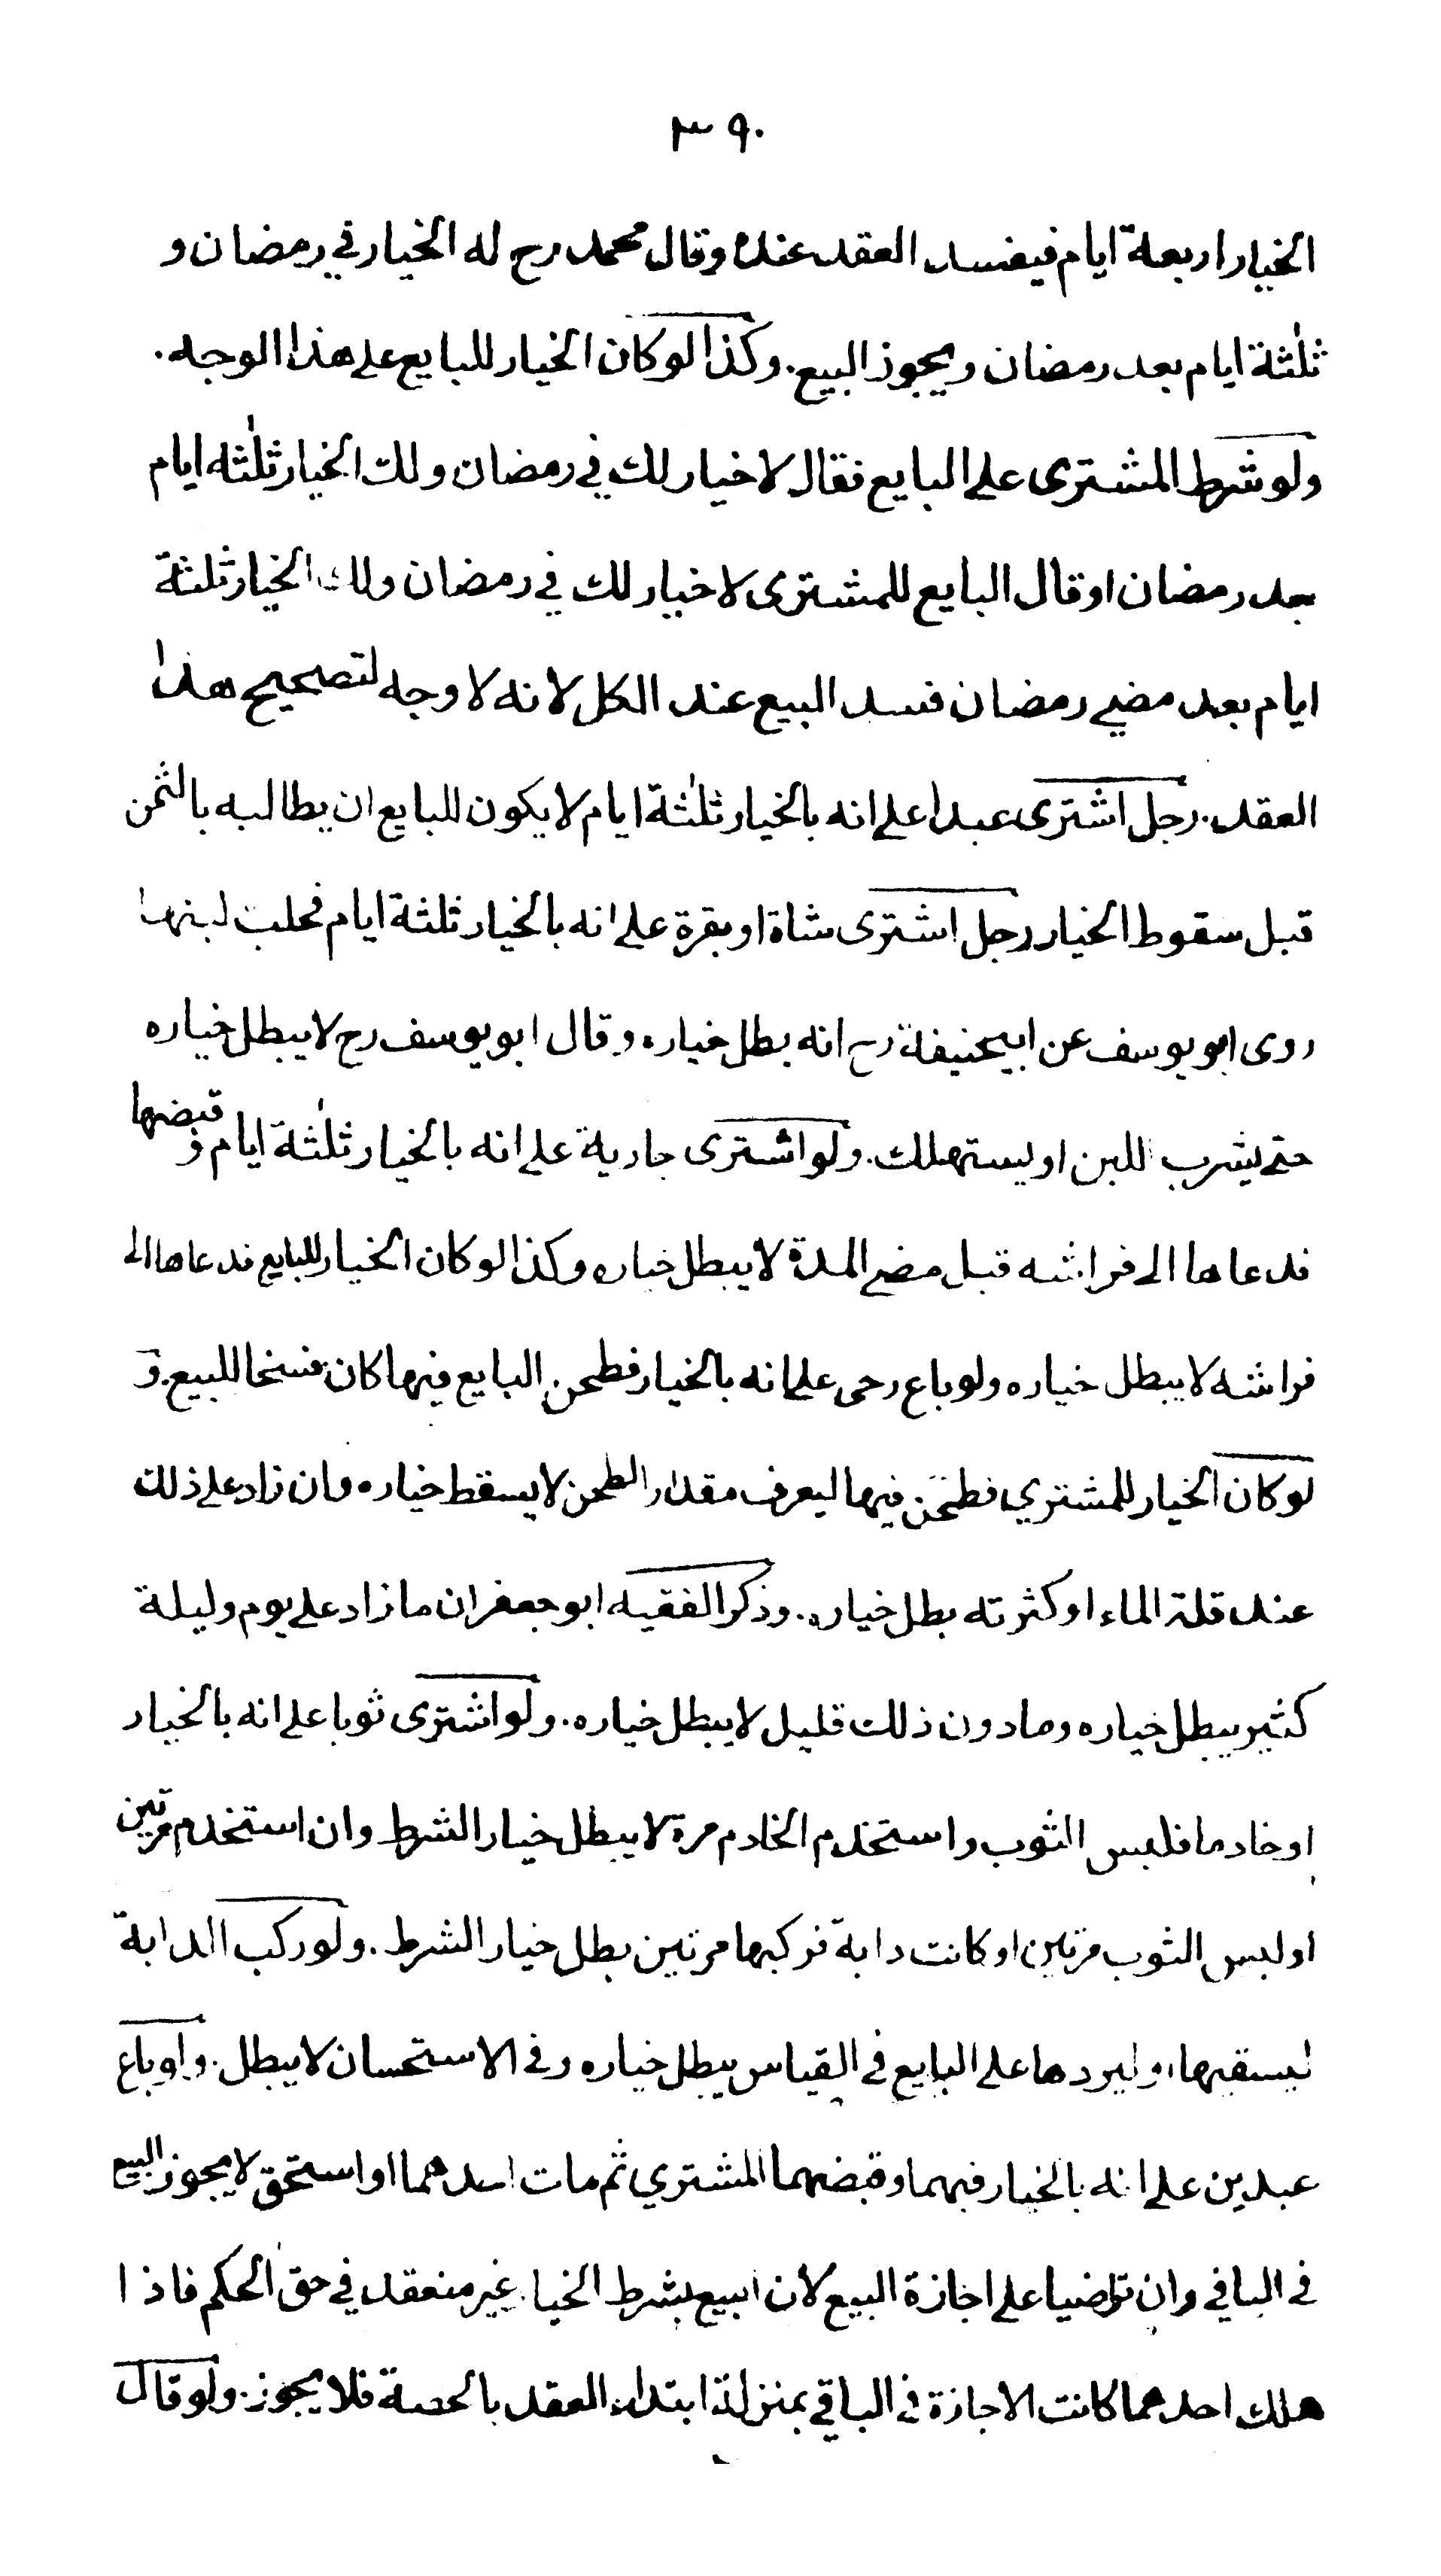 ٣٩٠
الخيار اربعة ايام فيفسد العقد عنده وقال محمد رح له الخيار في رمضان و
ثلٰثة ايام بعد رمضان ويجوز البيع. وكذا لوكان الخيار للبايع على هذا الوجه.
ولو شرط المشترى على البايع فقال لا خيار لك في رمضان ولك الخيار ثلٰثه ايام
بعد رمضان اوقال البايع للمشترى لا خيار لك في رمضان ولك الخيار ثلثة
ايام بعد مضي رمضان فسد البيع عند الكل لانه لا وجه لتصحيح هذا
العقد. رجل اشترى عبدا على انه بالخيار ثلٰثة ايام لا يكون للبايع ان يطالبه بالثمن
قبل سقوط الخيار رجل اشترى شاة او بقرة على انه بالخيار ثلثة ايام فحلب لبنها
روى ابو يوسف عن ابيحنيفة رح انه بطل خياره وقال ابو يوسف رح لا يبطل خياره
حتى يشرب اللبن او يستهلك. ولو اشترى جارية على انه بالخيار ثلٰثة ايام و قبضها
فدعاها الى فراشه قبل مضى المدة لا يبطل خياره وكذا لو كان الخيار للبايع فدعاها الى
فراشه لا يبطل خياره ولو باع رحى على انه بالخيار فطحن البايع فيها كان فسخا للبيع. و
لوكان الخيار للمشتري فطحن فيها ليعرف مقدار الطحن لا يسقط خياره وان زاد على ذلك
عند قلة الماء او كثرته بطل خياره. وذكر الفقيه ابو جعفر ان ما زاد على يوم وليلة
كثير يبطل خياره وما دون ذلك قليل لا يبطل خياره. ولو اشترى ثوبا على انه بالخيار
او خادما فلبس الثوب واستخدم الخادم مرة لا يبطل خيار الشرط وان استخدم مرتين
او لبس الثوب مرتين او كانت دابة فركبها مرتين بطل خيار الشرط. ولو ركب الدابة
ليسقيها او ليردها على البايع في القياس يبطل خياره وفى الاستحسان لا يبطل. ولو باع
عبدين على انه بالخيار فيهما وقبضهما المشتري ثم مات احدهما او استحق لا يجوز البيع
في الباقي وان تراضيا على اجازة البيع لان البيع بشرط الخيار غير منعقد في حق الحكم فاذا
هلك احدهما كانت الاجازة في الباقي بمنزلة ابتداء العقد بالحصة فلا يجوز. ولو قال